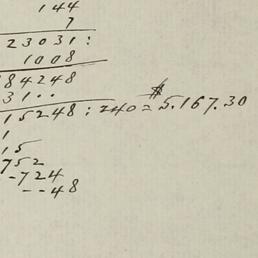 144
7
23031:
1008
84248
31··
15248:240=$5.167.30
1
15
752
-724
--48